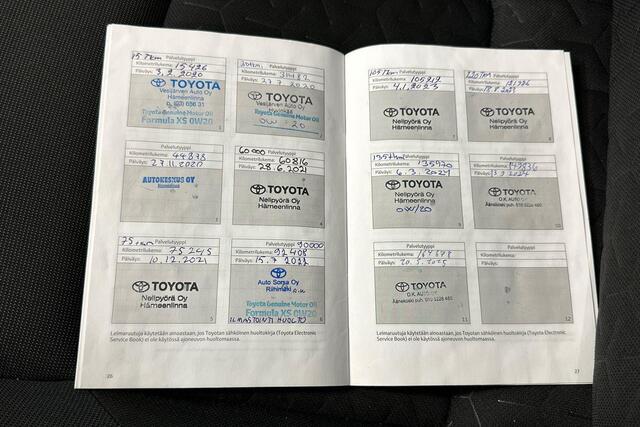 15 Tkm Palvelutyyppi
Kilometrilukema: 15426
Päiväys: 3.2.2020
TOYOTA
Vesijärven Auto Oy
Hämeenlinna
Toyota Genuine Motor Oil
Formula XS 0W20
1
Palvelutyyppi
Kilometrilukema:
Päiväys: 2020
TOYOTA
Vesijärven Auto Oy
Toyota Genuine Motor Oil
0W-20
2
Palvelutyyppi
Kilometrilukema: 44878
Päiväys: 27.11.2020
AUTOKESKUS OY
3
60000 Palvelutyyppi
Kilometrilukema: 60816
Päiväys: 28.6.2021
TOYOTA
Nelipyörä Oy
Hämeenlinna
4
75 Palvelutyyppi
Kilometrilukema: 75245
Päiväys: 10.12.2021
TOYOTA
Nelipyörä Oy
Hämeenlinna
5
Palvelutyyppi 90000
Kilometrilukema: 92408
Päiväys: 15.7.2022
TOYOTA
Auto Soria Oy
Riihimäki
Toyota Genuine Motor Oil
Formula XS 0W20
ILMASTOINTI HUOLTO
6
Leimaruutuja käytetään ainoastaan, jos Toyotan sähköinen huoltokirja (Toyota Electronic
Service Book) ei ole käytössä ajoneuvon huoltomaassa.
26
105 Tkm Palvelutyyppi
Kilometrilukema: 105212
Päiväys: 4.1.2023
TOYOTA
Nelipyörä Oy
Hämeenlinna
7
120 Tkm Palvelutyyppi
Kilometrilukema:
Päiväys:
TOYOTA
Nelipyörä Oy
Hämeenlinna
8
135 Tkm Palvelutyyppi
Kilometrilukema: 135970
Päiväys: 6.3.2024
TOYOTA
Nelipyörä Oy
Hämeenlinna
0W/20
9
Palvelutyyppi
Kilometrilukema:
Päiväys: 2024
TOYOTA
O.K. AUTO
Äänekoski puh. 010 1228 460
10
Palvelutyyppi
Kilometrilukema:
Päiväys: 20.5.2025
TOYOTA
O.K. AUTO
Äänekoski puh. 010 1228 460
11
Palvelutyyppi
Kilometrilukema:
Päiväys:
12
Leimaruutuja käytetään ainoastaan, jos Toyotan sähköinen huoltokirja (Toyota Electronic
Service Book) ei ole käytössä ajoneuvon huoltomaassa.
27